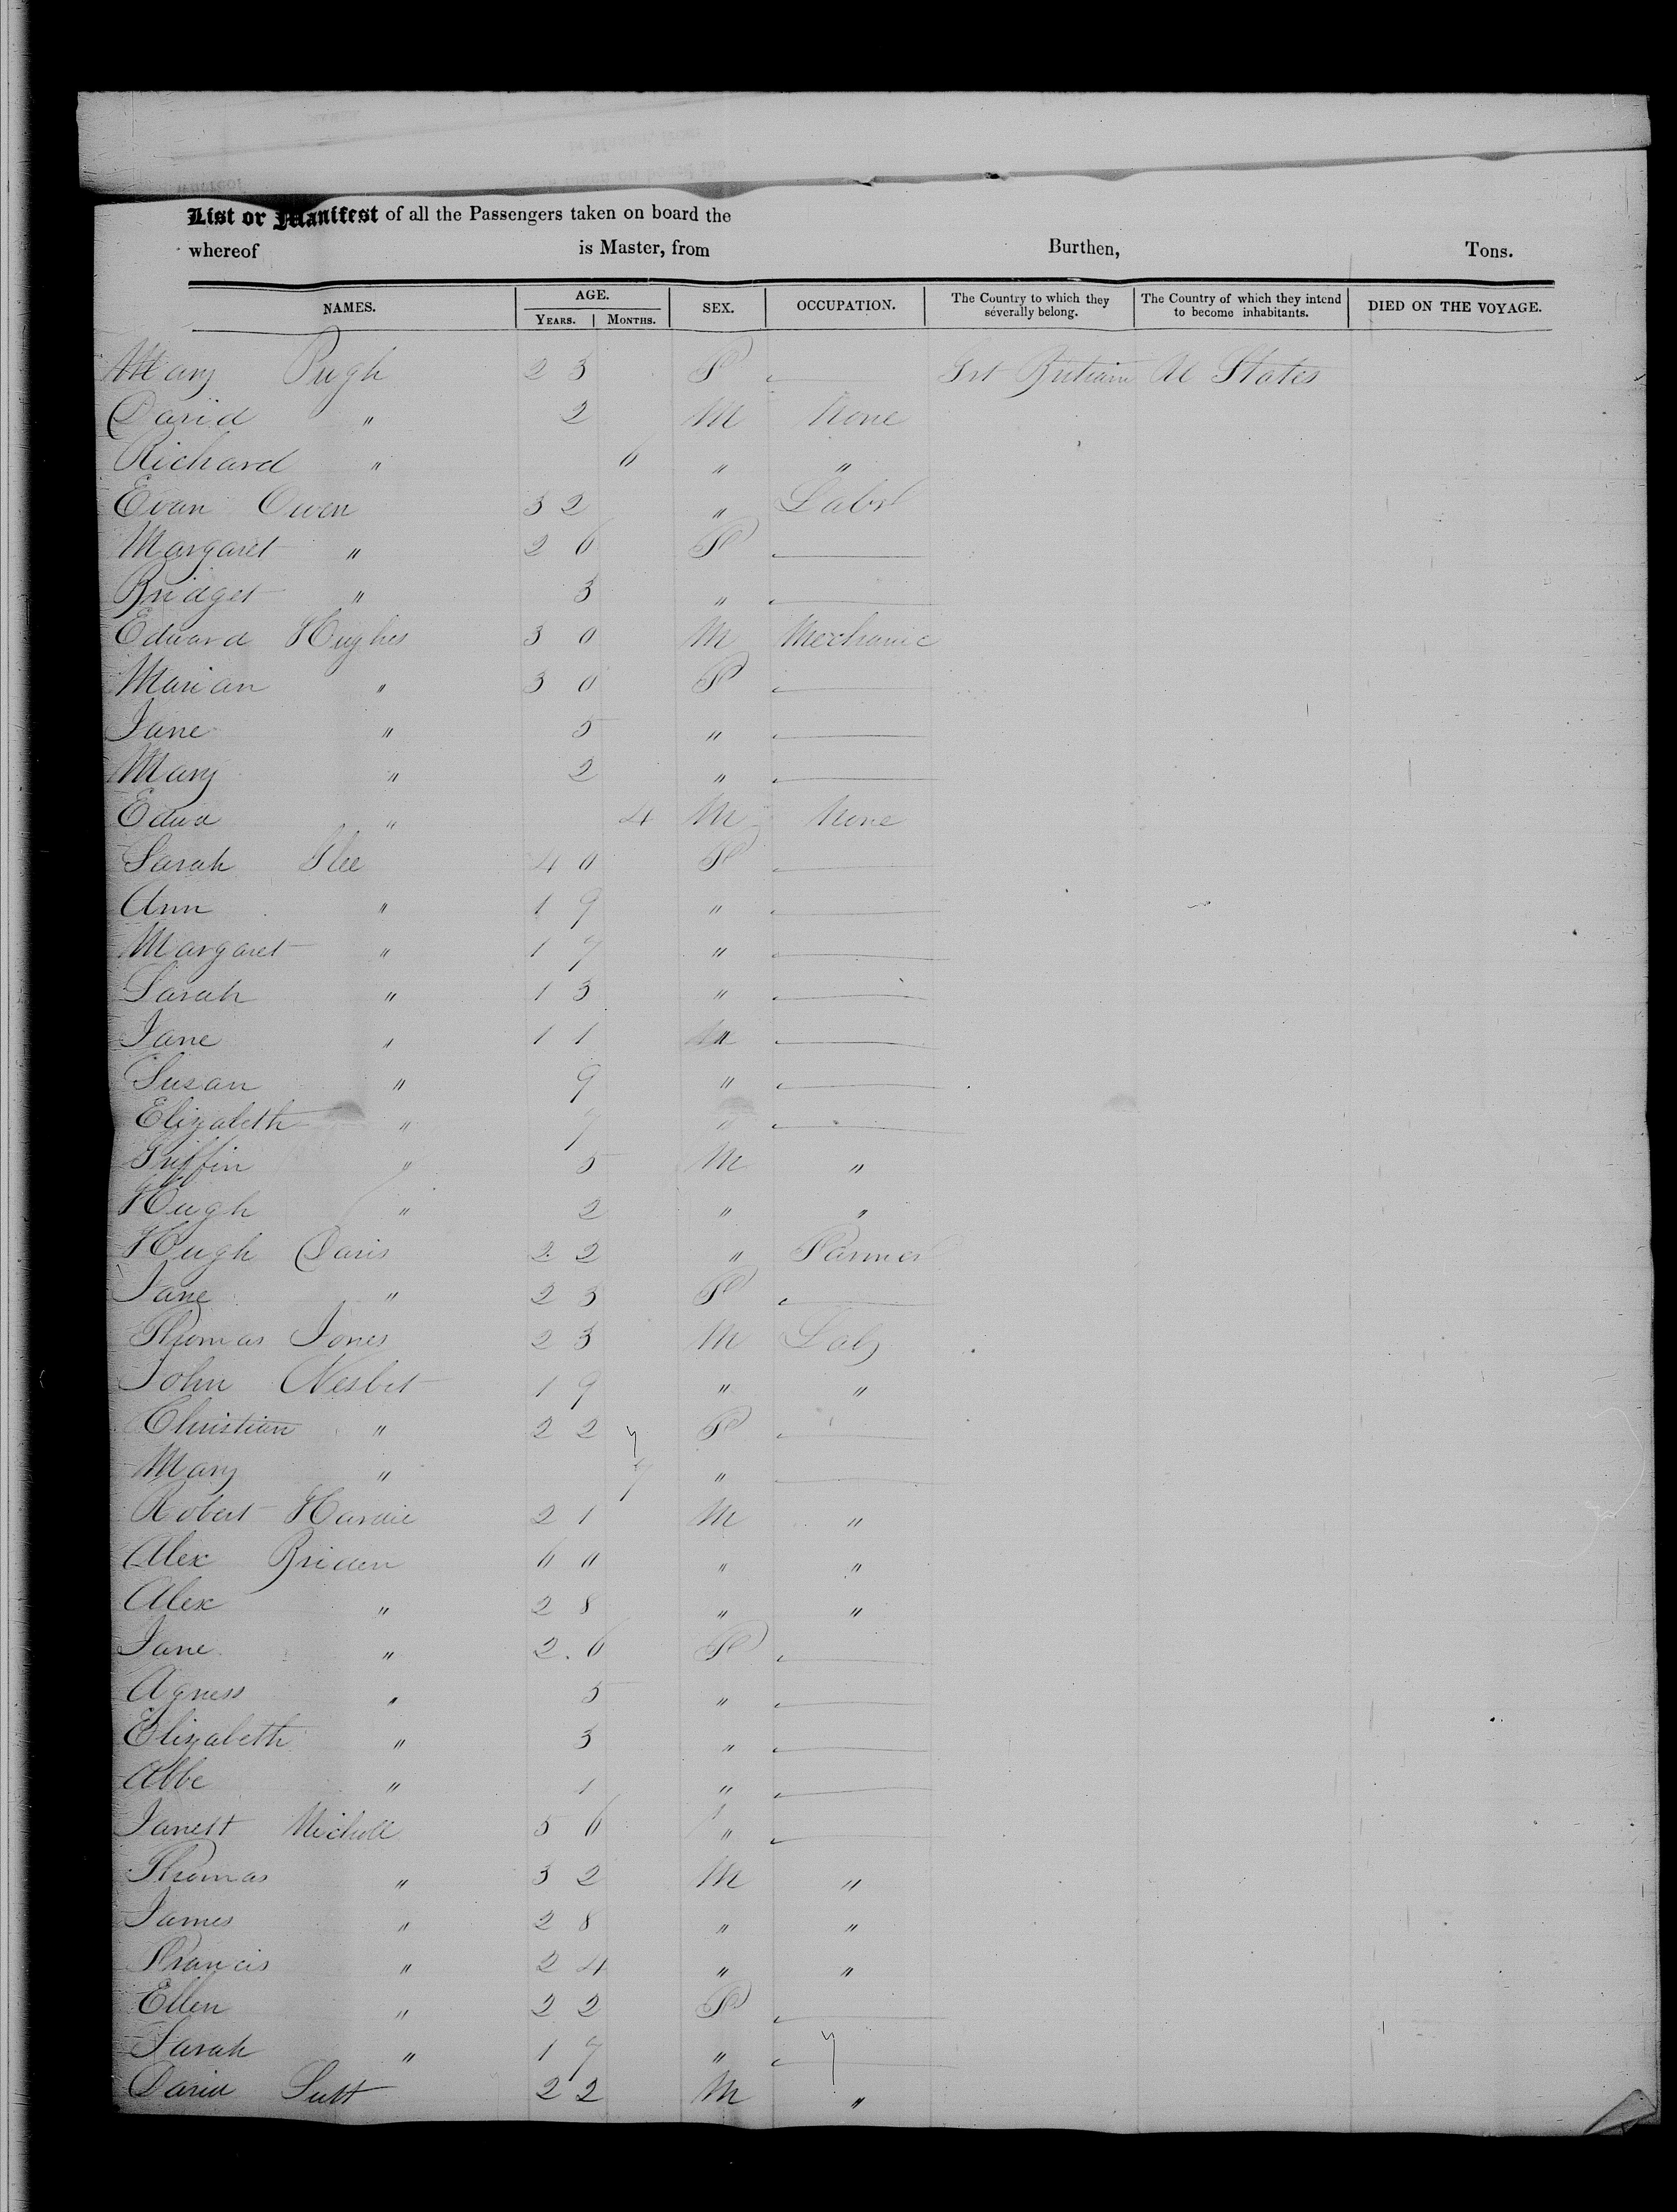 List or Manifest of all the Passengers taken on board the
whereof is Master, from Burthen, Tons.
NAMES. AGE. YEARS. MONTHS. SEX. OCCUPATION. The Country to which they severally belong. The Country of which they intend to become inhabitants. DIED ON THE VOYAGE.
Mary Pugh 23 F Grt Britain U States
David " 2 M None
Richard " 6 " "
Evan Owen 32 " Labr
Margaret " 26 F
Bridget " 3 "
Edward Hughes 30 M Mechanic
Marian " 30 F
Jane " 5 "
Mary " 2 "
Edwd " 4 M None
Sarah 40 F
Ann " 19 "
Margaret " 17 "
Sarah " 13 "
Jane " 11 "
Susan " 9 "
Elizabeth " 7 "
Griffin " 5 M "
Hugh " 2 " "
Hugh Davis 22 " Farmer
Jane " 23 F
Thomas Jones 23 M Lab
John Nesbit 19 " "
Christian " 22 F
Mary " 7 "
Robert Hardie 21 M "
Alex 60 " "
Alex " 28 " "
Jane " 26 F
Agness " 5 "
Elizabeth " 3 "
" 1 "
Janett Micholl 56 "
Thomas " 32 M "
James " 28 " "
Francis " 24 " "
Ellen " 22 F
Sarah " 17 "
David 22 M "